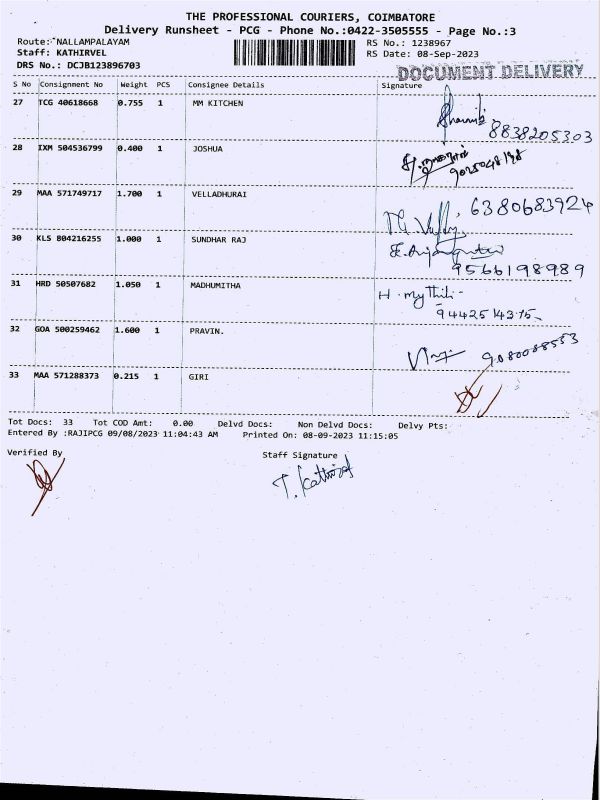 THE PROFESSIONAL COURIERS, COIMBATORE
Delivery Runsheet - PCG - Phone No.:0422-3505555 - Page No.:3
Route: NALLAMPALAYAM RS No.: 1238967
Staff: KATHIRVEL RS Date: 08-Sep-2023
DRS No.: DCJB123896703
DOCUMENT DELIVERY
S No Consignment No Weight PCS Consignee Details Signature
27 TCG 40618668 0.755 1 MM KITCHEN
8838205303
28 IXM 504536799 0.400 1 JOSHUA
9025048198
29 MAA 571749717 1.700 1 VELLADHURAI
6380683924
30 KLS 804216255 1.000 1 SUNDHAR RAJ
9566198989
31 HRD 50507682 1.050 1 MADHUMITHA
H. mythili
9442514315
32 GOA 500259462 1.600 1 PRAVIN.
9080088553
33 MAA 571288373 0.215 1 GIRI
Tot Docs: 33 Tot COD Amt: 0.00 Delvd Docs: Non Delvd Docs: Delvy Pts:
Entered By :RAJIPCG 09/08/2023 11:04:43 AM Printed On: 08-09-2023 11:15:05
Verified By Staff Signature
T. Kathirvel